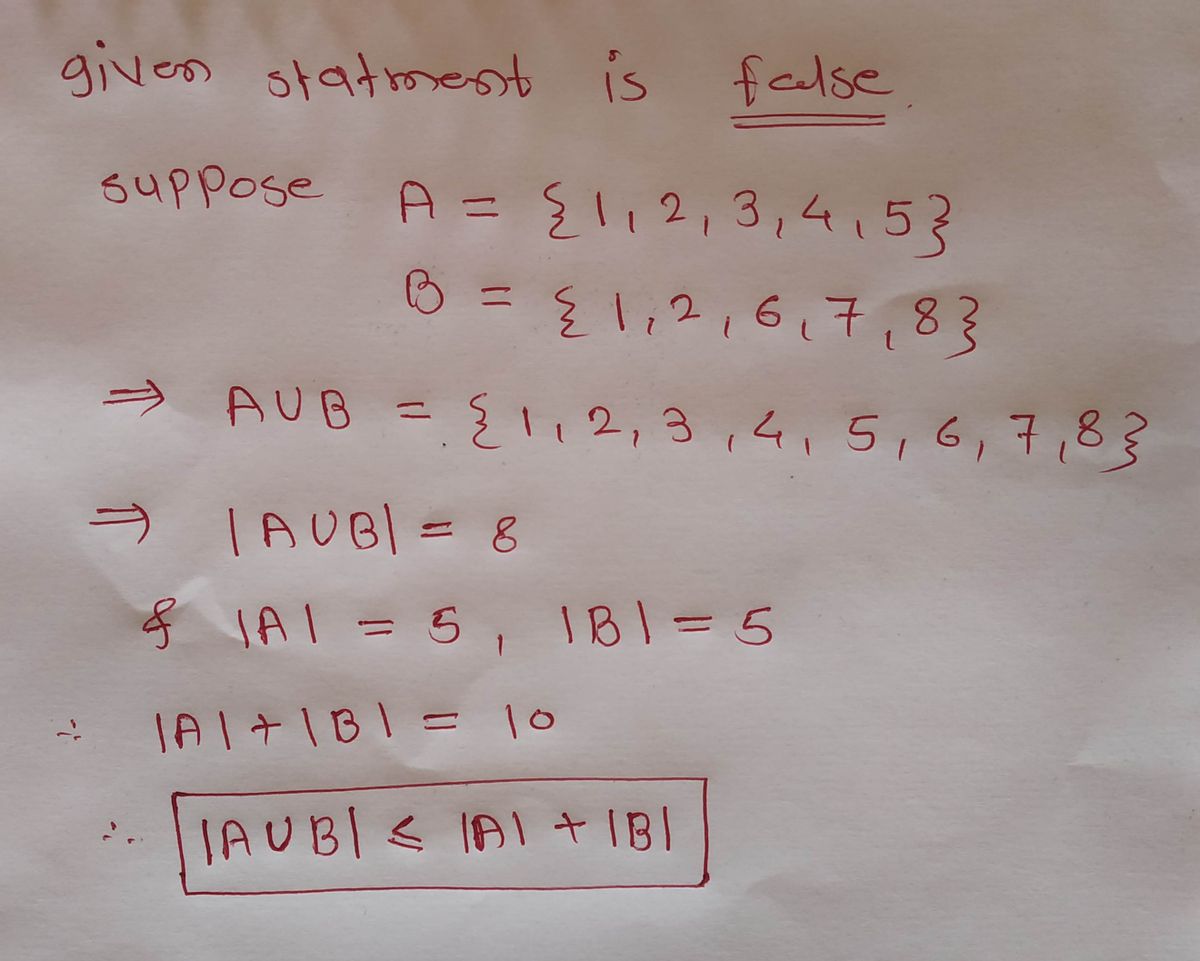 given statment is false.
suppose A = {1, 2, 3, 4, 5}
B = {1, 2, 6, 7, 8}
⇒ A∪B = {1, 2, 3, 4, 5, 6, 7, 8}
⇒ |A∪B| = 8
& |A| = 5, |B| = 5
∴ |A| + |B| = 10
∴ |A∪B| ≤ |A| + |B|